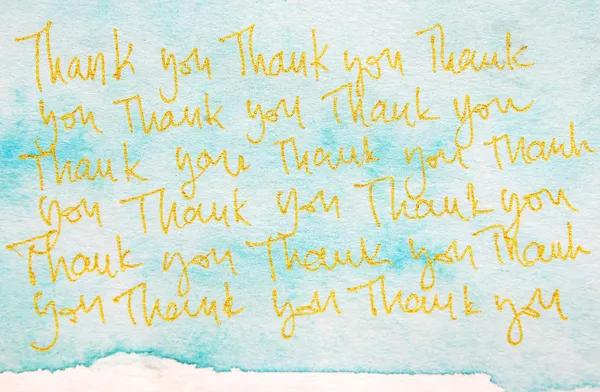 Thank you Thank you Thank
you Thank you Thank you
Thank you Thank you Thank
you Thank you Thank you
Thank you Thank you Thank
you Thank you Thank you